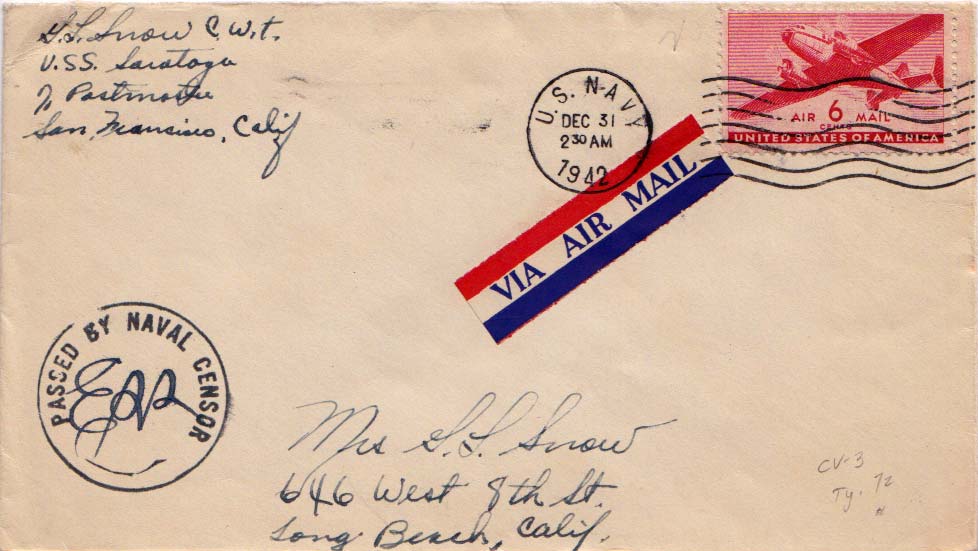 S.L. Snow C.W.t.
U.S.S. Saratoga
% Postmaster
San Francisco, Calif
U.S. NAVY
DEC 31
2 30 AM
1942
AIR 6 MAIL
CENTS
UNITED STATES OF AMERICA
VIA AIR MAIL
PASSED BY NAVAL CENSOR
Mrs S.L. Snow
646 West 8th St.
Long Beach, Calif.
CV-3
Ty. 7z